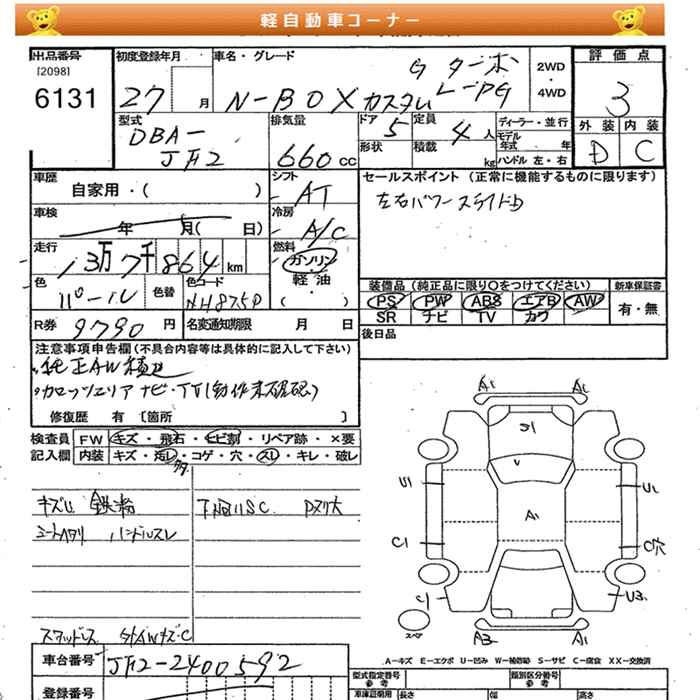 軽自動車コーナー
出品番号 初度登録年月 車名・グレード 評価点
[2098]
6131 27 月 N-BOXカスタム G ターボ Lーpg 2WD ・ 4WD 3
型式 DBA- JF2 排気量 660 cc ドア 5 定員 4 人 ディーラー・並行 外装 内装
形状 積載 kg モデル年式 年 ハンドル 左・右 D C
車歴 自家用・( ) シフト AT セールスポイント (正常に機能するものに限ります)
車検 年 月( 日) 冷房 A/C 左右パワースライドD
走行 13万7千864 km 燃料 ガソリン・軽油・( )
色 パール 色替 色コード NH875P 装備品 (純正品に限り○をつけてください) 新車保証書
PS PW ABS エアB AW 有・無
SR ナビ TV カワ
R券 9790 円 名変通知期限 月 日 後日品
注意事項申告欄 (不具合内容等は具体的に記入して下さい)
・純正AW積込
・カロッツェリア ナビ・TV(動作未確認)
修復歴 有 〔箇所 〕
検査員記入欄 FW キズ・飛石・ヒビ割・リペア跡・×要
内装 キズ・汚レ・コゲ・穴・スレ・キレ・破レ
キズU 鉄粉 下回りSC Pヌリ大
シートヘタリ ハンドルスレ
スタッドレス 社AWキズ・C
A1 A1
S1
V
U1 A1 U1
C1
C1 U3
スペア A2 A1
A-キズ E-エクボ U-凹み W-補修跡 S-サビ C-腐食 XX-交換済
車台番号 JF2-2400592
登録番号
型式指定番号 参考 類別区分番号 参考
車庫証明用 長さ 幅 高さ